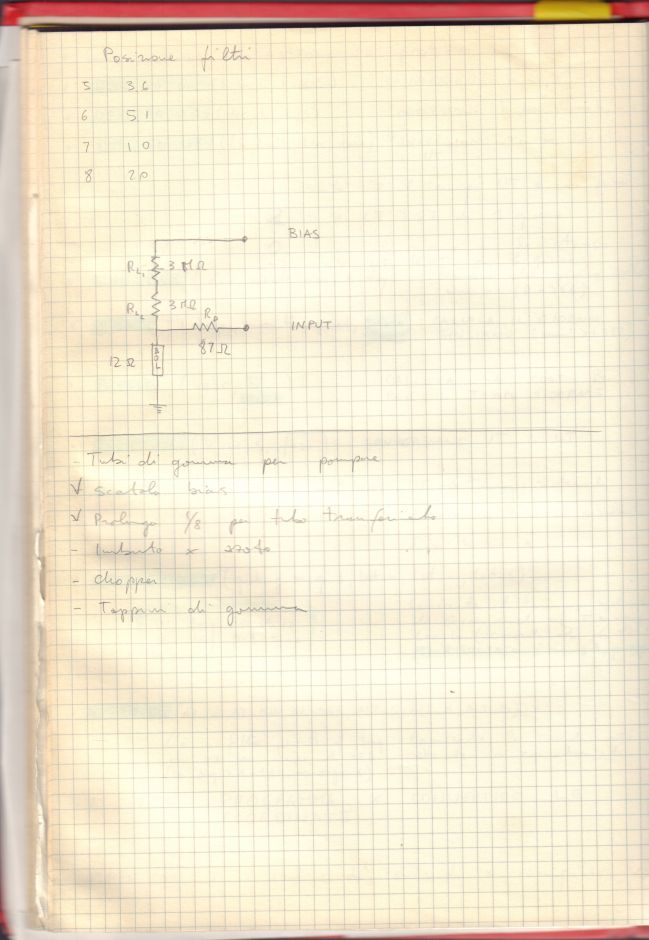 Posizione filtri
5 36
6 51
7 10
8 20
BIAS
RL1 3 MΩ
RL2 3 MΩ
Rp
INPUT
87Ω
12Ω BOL
- Tubi di gomma per pompare
√ Scatola bias
√ Prolunga 1/8 per tubo trasferimento
- Imbuto x azoto
- Chopper
- Tappini di gomma